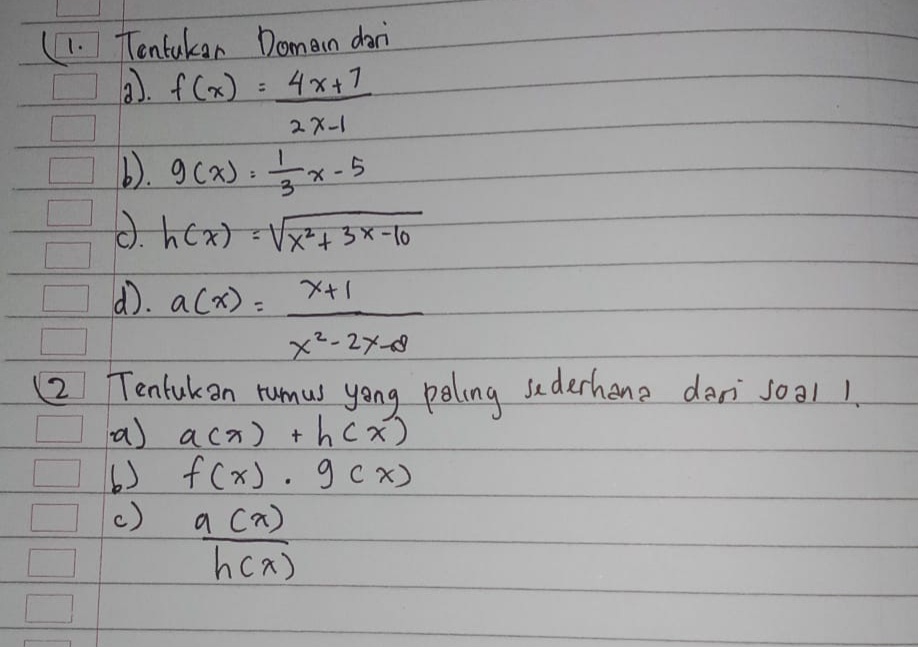 1. Tentukan Domain dari
a). f(x) = 4x+7
2x-1
b). g(x) = 1/3 x - 5
c). h(x) = √x²+3x-10
d). a(x) = x+1
x²-2x-8
2 Tentukan rumus yang paling sederhana dari soal 1.
a) a(x) + h(x)
b) f(x) . g(x)
c) a(x)
h(x)